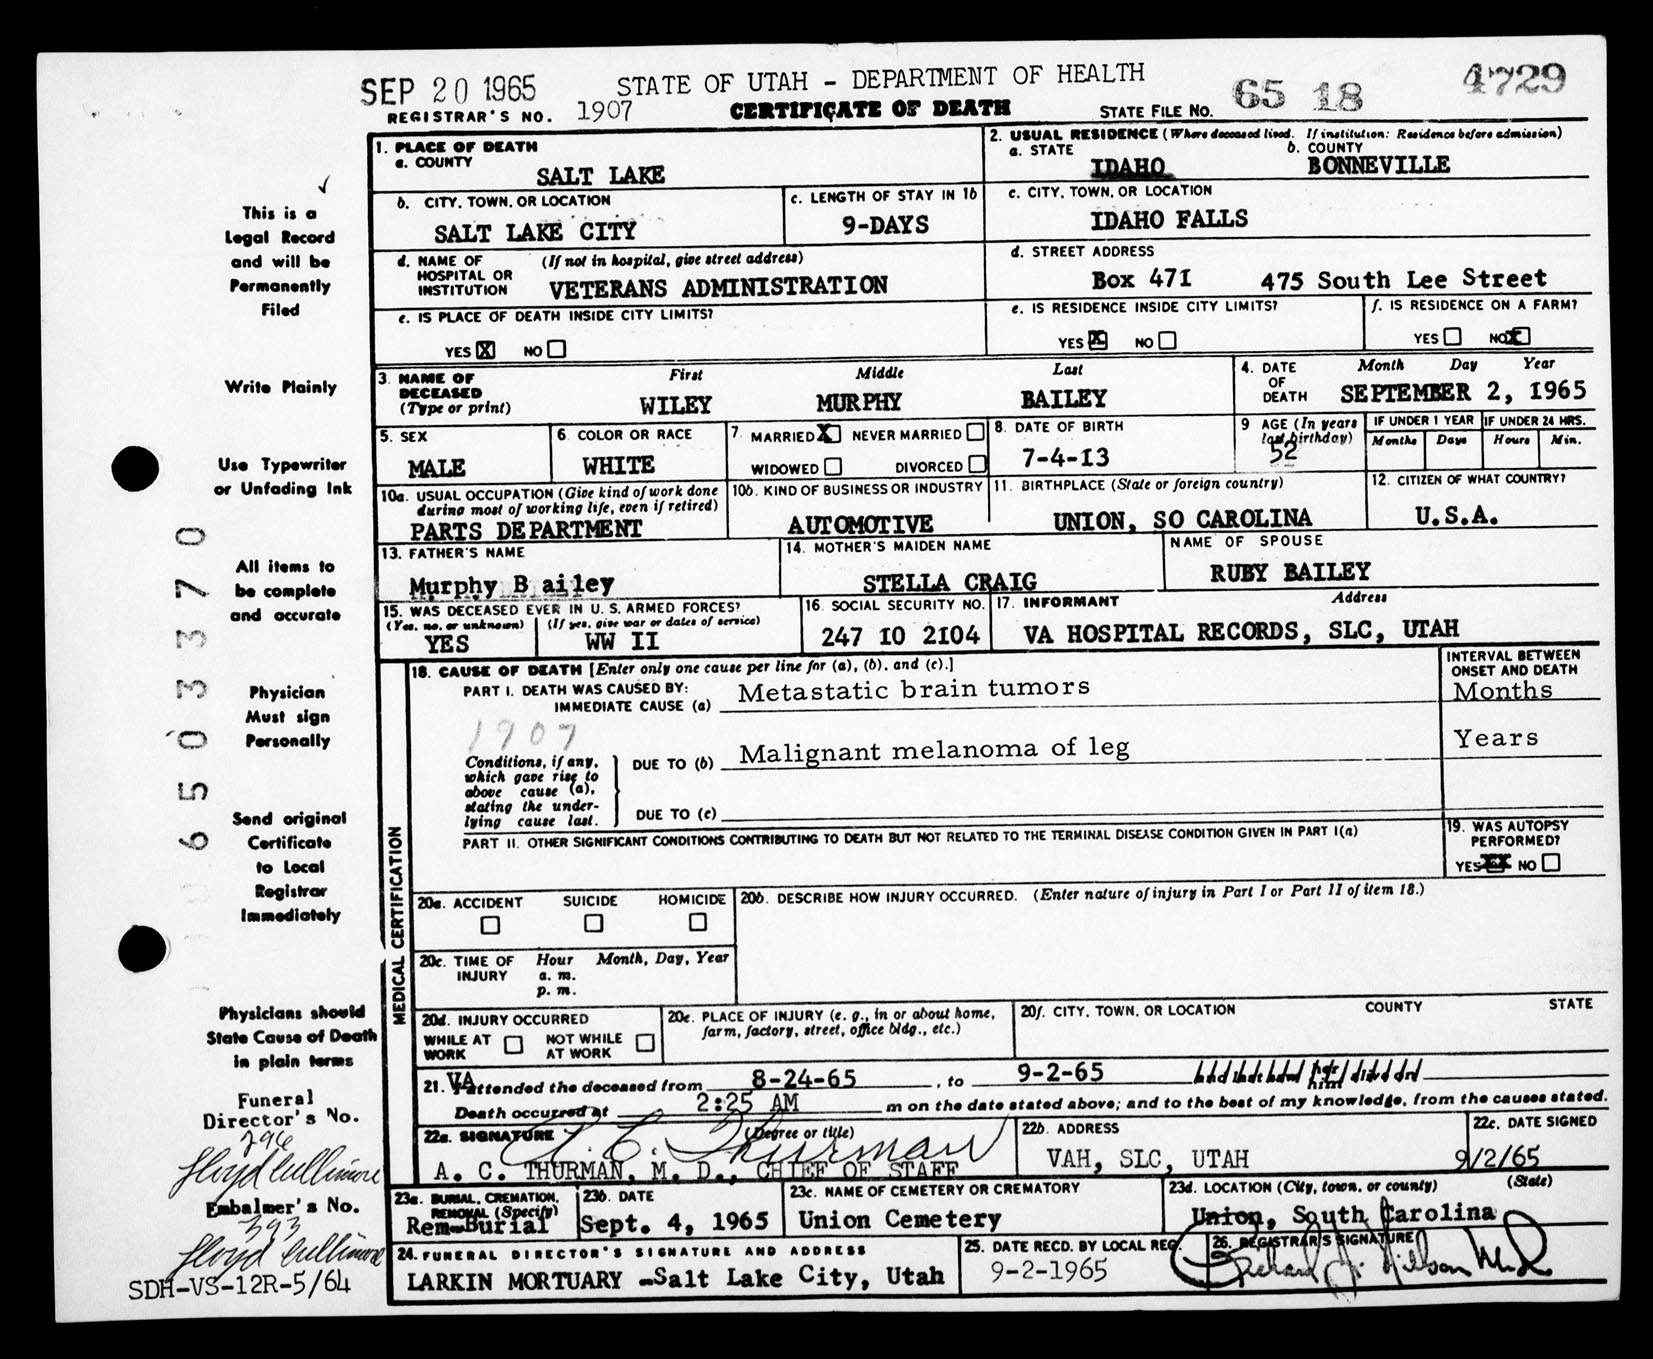 SEP 20 1965
STATE OF UTAH - DEPARTMENT OF HEALTH
REGISTRAR'S NO. 1907
CERTIFICATE OF DEATH
STATE FILE NO. 65 18 4729
1. PLACE OF DEATH
a. COUNTY
SALT LAKE
2. USUAL RESIDENCE (Where deceased lived. If institution: Residence before admission)
a. STATE IDAHO
b. COUNTY BONNEVILLE
b. CITY, TOWN, OR LOCATION
SALT LAKE CITY
c. LENGTH OF STAY IN 1b
9-DAYS
c. CITY, TOWN, OR LOCATION
IDAHO FALLS
d. NAME OF HOSPITAL OR INSTITUTION (If not in hospital, give street address)
VETERANS ADMINISTRATION
d. STREET ADDRESS
Box 471 475 South Lee Street
e. IS PLACE OF DEATH INSIDE CITY LIMITS?
YES X NO
e. IS RESIDENCE INSIDE CITY LIMITS?
YES X NO
f. IS RESIDENCE ON A FARM?
YES NO X
3. NAME OF DECEASED (Type or print)
First Middle Last
WILEY MURPHY BAILEY
4. DATE OF DEATH
Month Day Year
SEPTEMBER 2, 1965
5. SEX
MALE
6. COLOR OR RACE
WHITE
7. MARRIED X NEVER MARRIED
WIDOWED DIVORCED
8. DATE OF BIRTH
7-4-13
9 AGE (In years last birthday)
52
IF UNDER 1 YEAR
Months Days
IF UNDER 24 HRS.
Hours Min.
10a. USUAL OCCUPATION (Give kind of work done during most of working life, even if retired)
PARTS DEPARTMENT
10b. KIND OF BUSINESS OR INDUSTRY
AUTOMOTIVE
11. BIRTHPLACE (State or foreign country)
UNION, SO CAROLINA
12. CITIZEN OF WHAT COUNTRY?
U.S.A.
13. FATHER'S NAME
Murphy B ailey
14. MOTHER'S MAIDEN NAME
STELLA CRAIG
NAME OF SPOUSE
RUBY BAILEY
15. WAS DECEASED EVER IN U. S. ARMED FORCES?
(Yes, no, or unknown) (If yes, give war or dates of service)
YES WW II
16. SOCIAL SECURITY NO.
247 10 2104
17. INFORMANT Address
VA HOSPITAL RECORDS, SLC, UTAH
MEDICAL CERTIFICATION
18. CAUSE OF DEATH [Enter only one cause per line for (a), (b), and (c).]
INTERVAL BETWEEN ONSET AND DEATH
PART I. DEATH WAS CAUSED BY:
IMMEDIATE CAUSE (a) Metastatic brain tumors Months
1907
Conditions, if any, which gave rise to above cause (a), stating the underlying cause last.
DUE TO (b) Malignant melanoma of leg Years
DUE TO (c)
PART II. OTHER SIGNIFICANT CONDITIONS CONTRIBUTING TO DEATH BUT NOT RELATED TO THE TERMINAL DISEASE CONDITION GIVEN IN PART I(a)
19. WAS AUTOPSY PERFORMED?
YES XX NO
20a. ACCIDENT SUICIDE HOMICIDE
20b. DESCRIBE HOW INJURY OCCURRED. (Enter nature of injury in Part I or Part II of item 18.)
20c. TIME OF INJURY Hour Month, Day, Year
a. m.
p. m.
20d. INJURY OCCURRED
WHILE AT WORK NOT WHILE AT WORK
20e. PLACE OF INJURY (e. g., in or about home, farm, factory, street, office bldg., etc.)
20f. CITY, TOWN, OR LOCATION COUNTY STATE
21. VA attended the deceased from 8-24-65, to 9-2-65
Death occurred at 2:25 AM m on the date stated above; and to the best of my knowledge, from the causes stated.
22a. SIGNATURE (Degree or title)
A. C. Thurman
A. C. THURMAN, M. D., CHIEF OF STAFF
22b. ADDRESS
VAH, SLC, UTAH
22c. DATE SIGNED
9/2/65
23a. BURIAL, CREMATION, REMOVAL (Specify)
Rem-Burial
23b. DATE
Sept. 4, 1965
23c. NAME OF CEMETERY OR CREMATORY
Union Cemetery
23d. LOCATION (City, town, or county) (State)
Union, South Carolina
24. FUNERAL DIRECTOR'S SIGNATURE AND ADDRESS
LARKIN MORTUARY -Salt Lake City, Utah
25. DATE RECD. BY LOCAL REG.
9-2-1965
26. REGISTRAR'S SIGNATURE
This is a
Legal Record
and will be
Permanently
Filed
Write Plainly
Use Typewriter
or Unfading Ink
All items to
be complete
and accurate
Physician
Must sign
Personally
Send original
Certificate
to Local
Registrar
Immediately
Physicians should
State Cause of Death
in plain terms
Funeral
Director's No.
296
Lloyd Cullimore
Embalmer's No.
393
Lloyd Cullimore
SDH-VS-12R-5/64
65033370